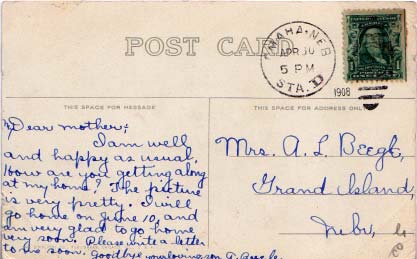 POST CARD
OMAHA, NEB
APR 30
5 PM
1908
STA. D
THIS SPACE FOR MESSAGE
THIS SPACE FOR ADDRESS ONLY
Dear mother:
I am well
and happy as usual,
How are you getting along
at my home? The picture
is very pretty. I will
go home on June 10, and
am very glad to go home
very soon. Please write a letter
to me soon. Goodbye your loving son A. Beegle.
Mrs. A. L. Beegle,
Grand Island,
Nebr.